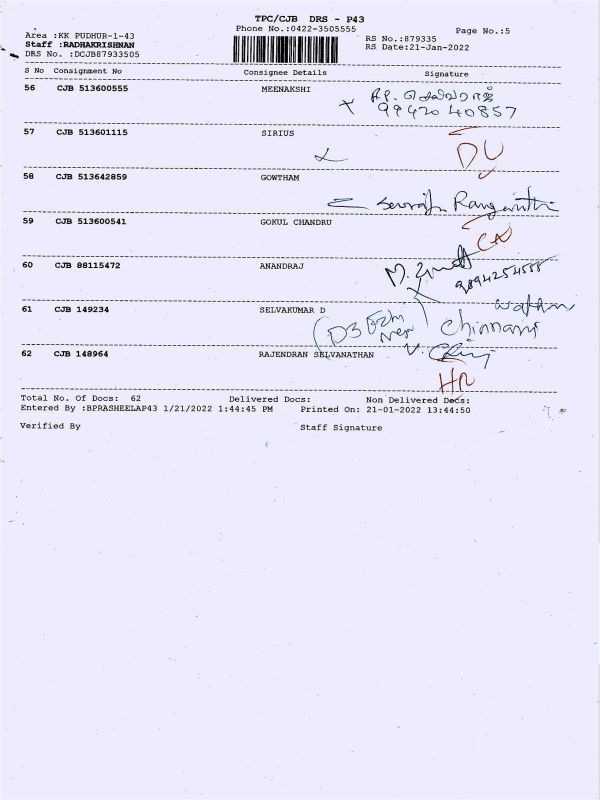 TPC/CJB DRS - P43
Phone No.:0422-3505555
Page No.:5
Area :KK PUDHUR-1-43
RS No.:879335
Staff :RADHAKRISHNAN
RS Date:21-Jan-2022
DRS No. :DCJB87933505
S No Consignment No Consignee Details Signature
56 CJB 513600555 MEENAKSHI
9942040857
57 CJB 513601115 SIRIUS
DU
58 CJB 513642859 GOWTHAM
59 CJB 513600541 GOKUL CHANDRU
60 CJB 88115472 ANANDRAJ
61 CJB 149234 SELVAKUMAR D
62 CJB 148964 RAJENDRAN SELVANATHAN
Total No. Of Docs: 62 Delivered Docs: Non Delivered Docs:
Entered By :BPRASHEELAP43 1/21/2022 1:44:45 PM Printed On: 21-01-2022 13:44:50
Verified By Staff Signature